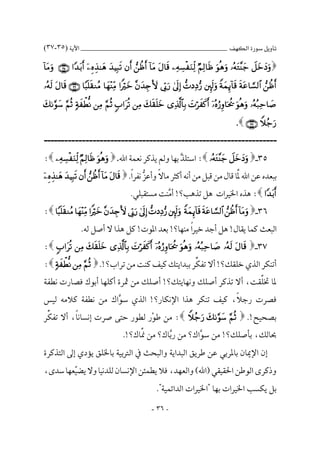 تأويل سورة الكهف الآية (٣٥-٣٧)
﴿ وَدَخَلَ جَنَّتَهُۥ وَهُوَ ظَالِمٌ لِّنَفْسِهِۦ قَالَ مَآ أَظُنُّ أَن تَبِيدَ هَٰذِهِۦٓ أَبَدًا ۝٣٥ وَمَآ
أَظُنُّ ٱلسَّاعَةَ قَآئِمَةً وَلَئِن رُّدِدتُّ إِلَىٰ رَبِّى لَأَجِدَنَّ خَيْرًا مِّنْهَا مُنقَلَبًا ۝٣٦ قَالَ لَهُۥ
صَاحِبُهُۥ وَهُوَ يُحَاوِرُهُۥٓ أَكَفَرْتَ بِٱلَّذِى خَلَقَكَ مِن تُرَابٍ ثُمَّ مِن نُّطْفَةٍ ثُمَّ سَوَّىٰكَ
رَجُلًا ۝٣٧ ﴾.
٣٥ـ ﴿ وَدَخَلَ جَنَّتَهُۥ ﴾: استلذَّ بها ولم يذكر نعمة الله. ﴿ وَهُوَ ظَالِمٌ لِّنَفْسِهِۦ ﴾:
ببعده عن الله لمَّا قال من قبل من أنه أكثر مالاً وأعزُّ نفراً. ﴿ قَالَ مَآ أَظُنُّ أَن تَبِيدَ هَٰذِهِۦٓ
أَبَدًا ﴾: هذه الخيرات هل تذهب؟! أمَّنت مستقبلي.
٣٦ـ ﴿ وَمَآ أَظُنُّ ٱلسَّاعَةَ قَآئِمَةً وَلَئِن رُّدِدتُّ إِلَىٰ رَبِّى لَأَجِدَنَّ خَيْرًا مِّنْهَا مُنقَلَبًا ﴾:
البعث كما يقال! هل أجد خيراً منها؟! بعد الموت! كل هذا لا أصل له.
٣٧ـ ﴿ قَالَ لَهُۥ صَاحِبُهُۥ وَهُوَ يُحَاوِرُهُۥٓ أَكَفَرْتَ بِٱلَّذِى خَلَقَكَ مِن تُرَابٍ ﴾:
أتنكر الذي خلقك؟! ألا تفكّر ببدايتك كيف كنت من تراب؟!. ﴿ ثُمَّ مِن نُّطْفَةٍ ﴾:
لما تخلَّقت، ألا تذكر أصلك ونهايتك؟! أصلك من ثمرة أكلها أبوك فصارت نطفة
فصرت رجلاً، كيف تنكر هذا الإنكار؟! الذي سوَّاك من نطفة كلامه ليس
بصحيح!. ﴿ ثُمَّ سَوَّىٰكَ رَجُلًا ﴾: من طوَّر لطور حتى صرت إنساناً، ألا تفكّر
بحالك، بأصلك؟! من سوَّاك؟ من ربَّاك؟ من نمَّاك؟!.
إن الإيمان بالمربي عن طريق البداية والبحث في التربية بالخلق يؤدي إلى التذكرة
وذكرى الوطن الحقيقي (الله) والعهد، فلا يطمئن الإنسان للدنيا ولا يضيّعها سدى،
بل يكسب الخيرات بها "الخيرات الدائمية".
- ٣٦ -